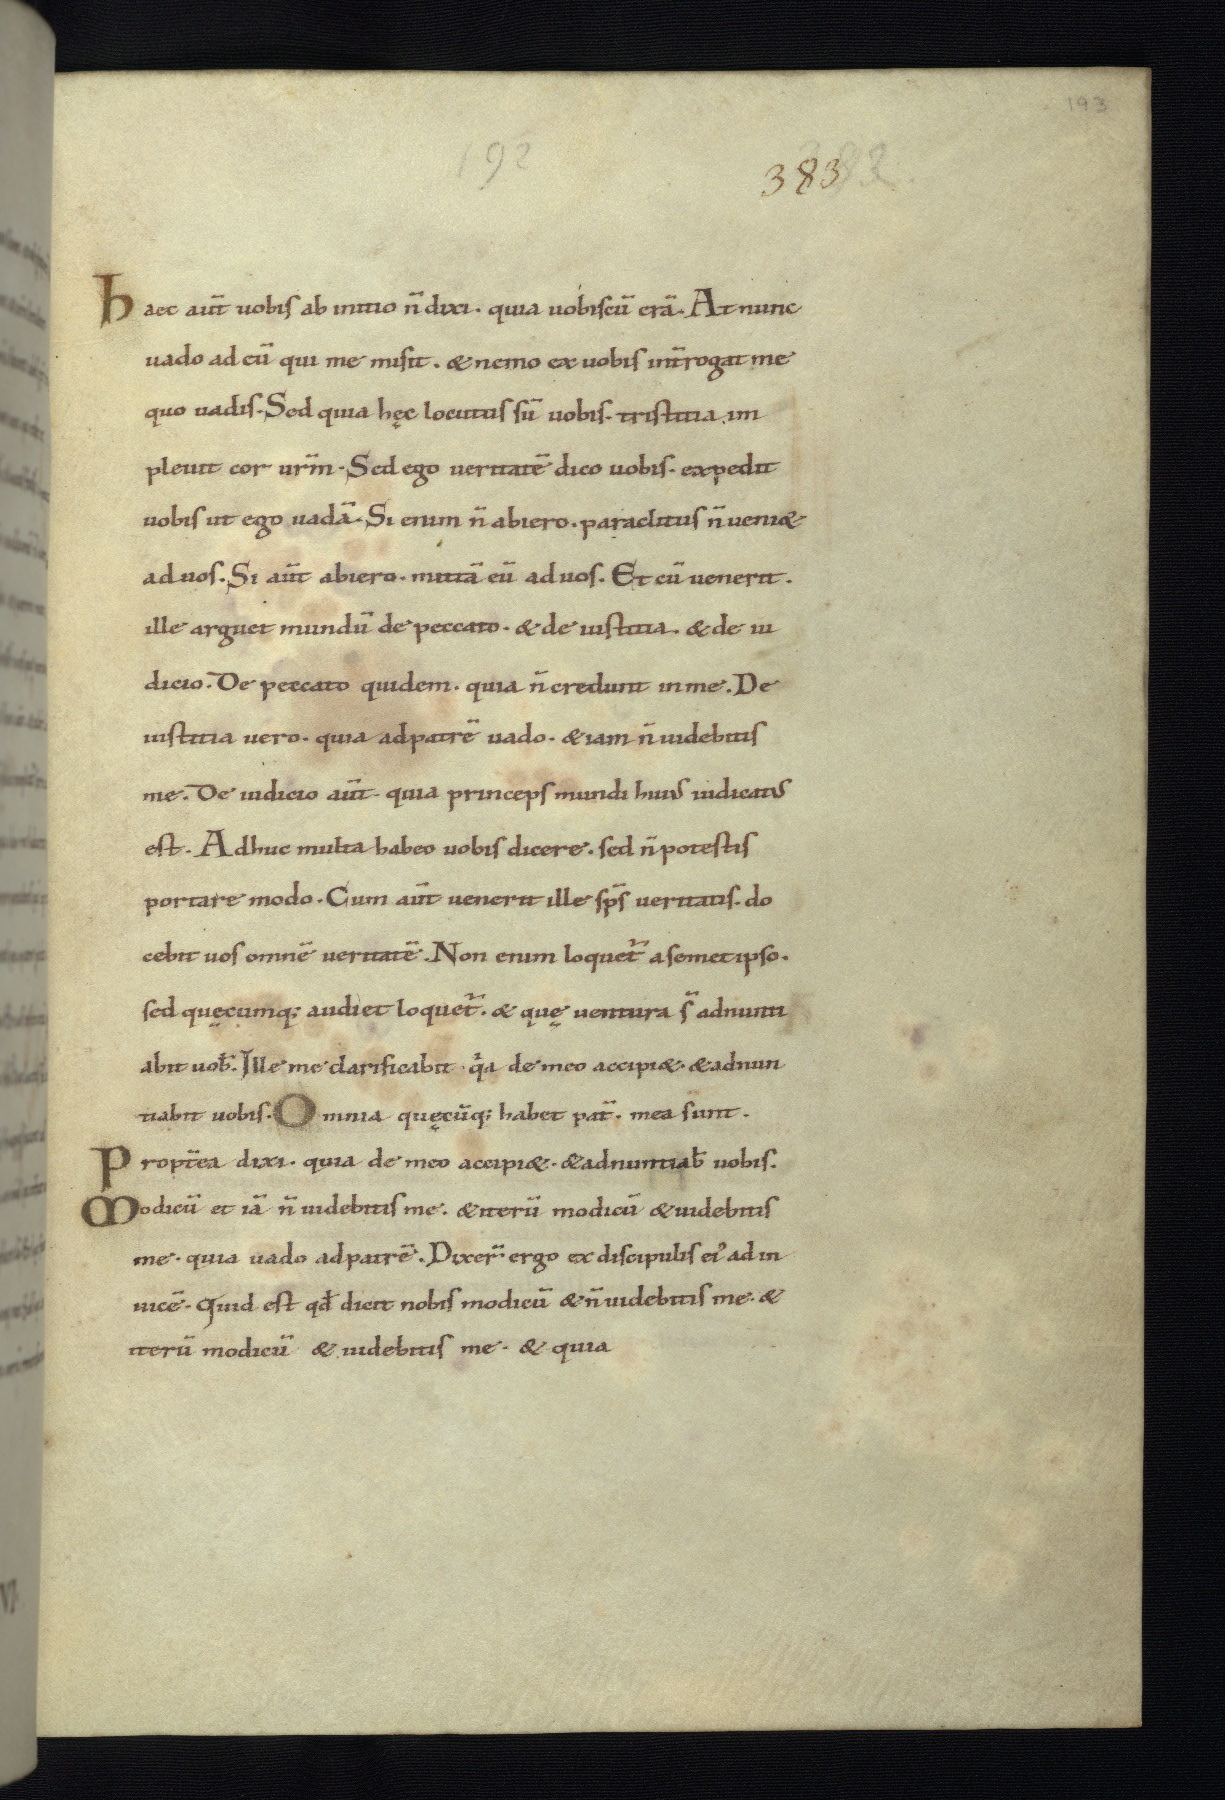 193
192
383 382
Haec aut̄ uobis ab initio n̄ dixi. quia uobiscū erā. At nunc
uado ad eū qui me misit. & nemo ex uobis int̄rogat me
quo uadis. Sed quia hęc locutus sū uobis. tristitia im
pleuit cor ur̄m. Sed ego ueritatē dico uobis. expedit
uobis ut ego uadā. Si enim n̄ abiero. paraclitus n̄ ueni&
ad uos. Si aut̄ abiero. mittā eū ad uos. Et cū uenerit.
ille arguet mundū de peccato. & de iustitia. & de iu
dicio. De peccato quidem. quia n̄ credunt in me. De
iustitia uero. quia ad patrē uado. & iam n̄ uidebitis
me. De iudicio aut̄. quia princeps mundi huiꝰ iudicatꝰ
est. Adhuc multa habeo uobis dicere. sed n̄ potestis
portare modo. Cum aut̄ uenerit ille sp̄s ueritatis. do
cebit uos omnē ueritatē. Non enim loquet̄ a semet ipso.
sed quęcumq; audiet loquet̄. & quę uentura s̄ adnunti
abit uob̄. Ille me clarificabit. qͣ de meo accipi&. & adnun
tiabit uobis. Omnia quęcūq; habet pat̄. mea sunt.
Propt̄ea dixi. quia de meo accipi&. & adnuntiab̄ uobis.
Modicū et iā n̄ uidebitis me. & iterū modicū & uidebitis
me. quia uado ad patrē. Dixer̄ ergo ex discipulis eiꝰ ad in
uicē. Quid est qd̄ dicit nobis modicū & n̄ uidebitis me. &
iterū modicū & uidebitis me. & quia